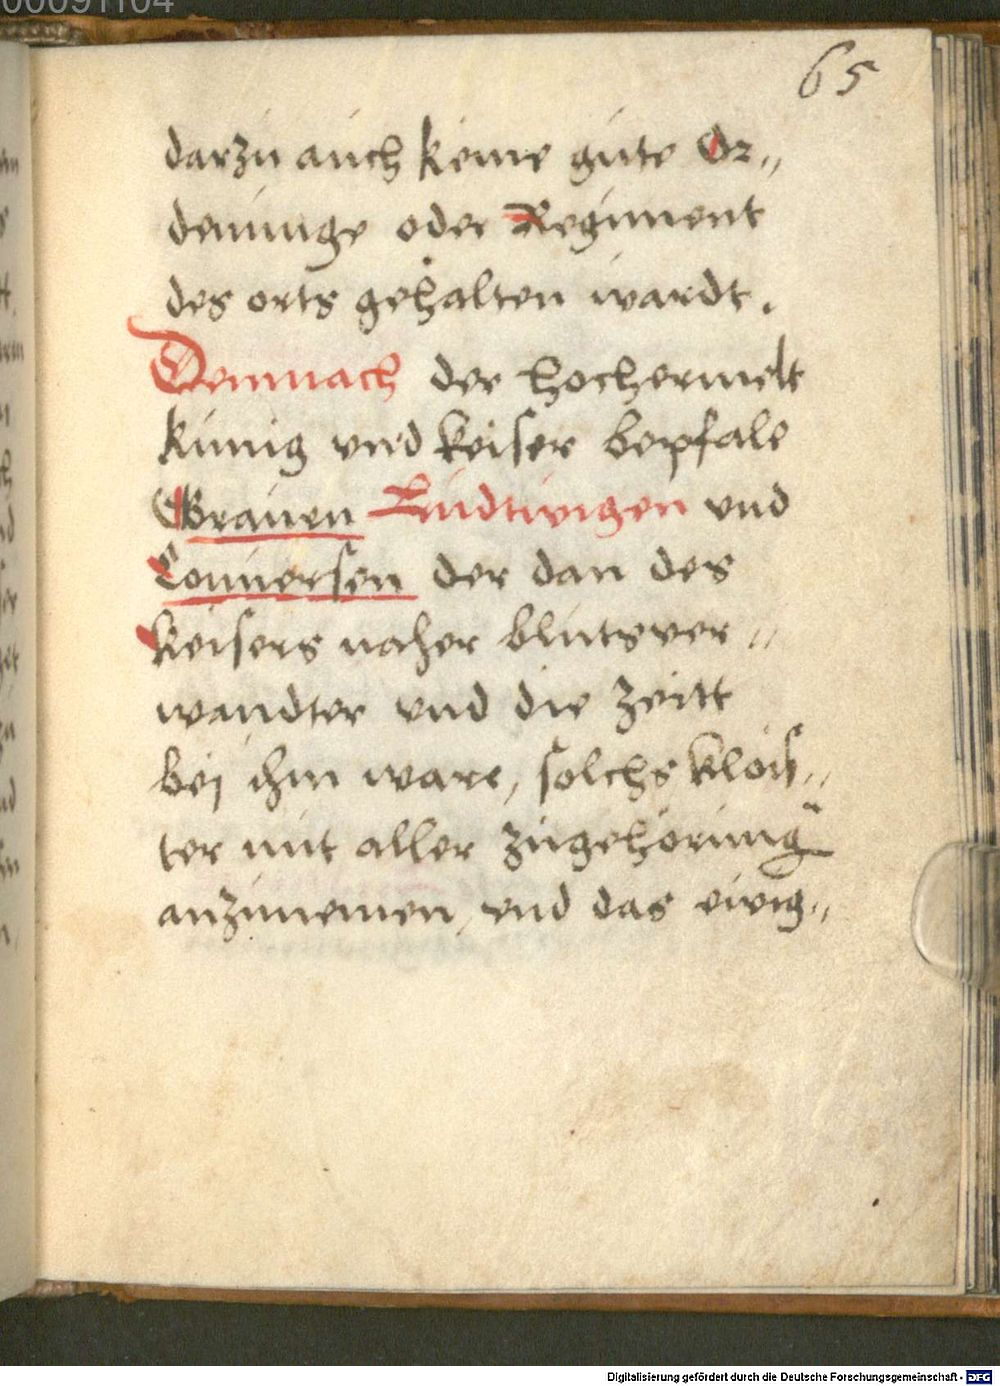 00091104
65
darzu auch keine gute Or„
denunge oder Regiment
des orts gehalten wardt.
Demnach der hochermelt
kunig vnd keiser bepfale
Grauen Ludtwigen vnd
Conuersen der dan des
keisers naher blutsver„
wandter vnd die zeitt
bei ihm ware, solchs klois„
ter mit aller zugehorung
anzunemen, vnd das ewig„
Digitalisierung gefördert durch die Deutsche Forschungsgemeinschaft - DFG